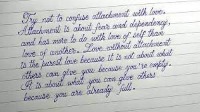 Try not to confuse attachment with love.
Attachment is about fear and dependency,
and has more to do with love of self than
love of another. Love without attachment
is the purest love because it is not about what
others can give you because you're empty.
It is about what you can give others
because you are already full.